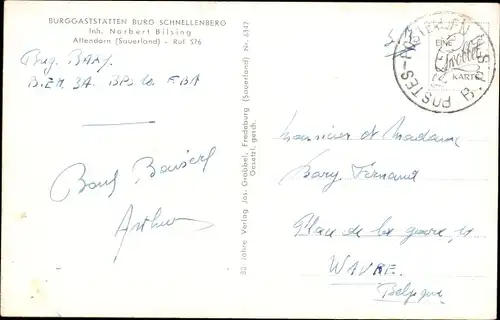 BURGGASTSTÄTTEN BURG SCHNELLENBERG
Inh. Norbert Bilsing
Attendorn (Sauerland) - Ruf 576
Brig. BARY
B.E.M. 3A. BPS 10 FBA
Bons Baisers
Arthur
30 Jahre Verlag Jos. Grobbel, Fredeburg (Sauerland) Nr. 6347
Gesetzl. gesch.
S.M
EINE
Grobbel
KARTE
POSTES-POSTERIJEN
B.P.S
Monsieur et Madame
Bary Fernand
Place de la gare, 11
WAVRE.
Belgique